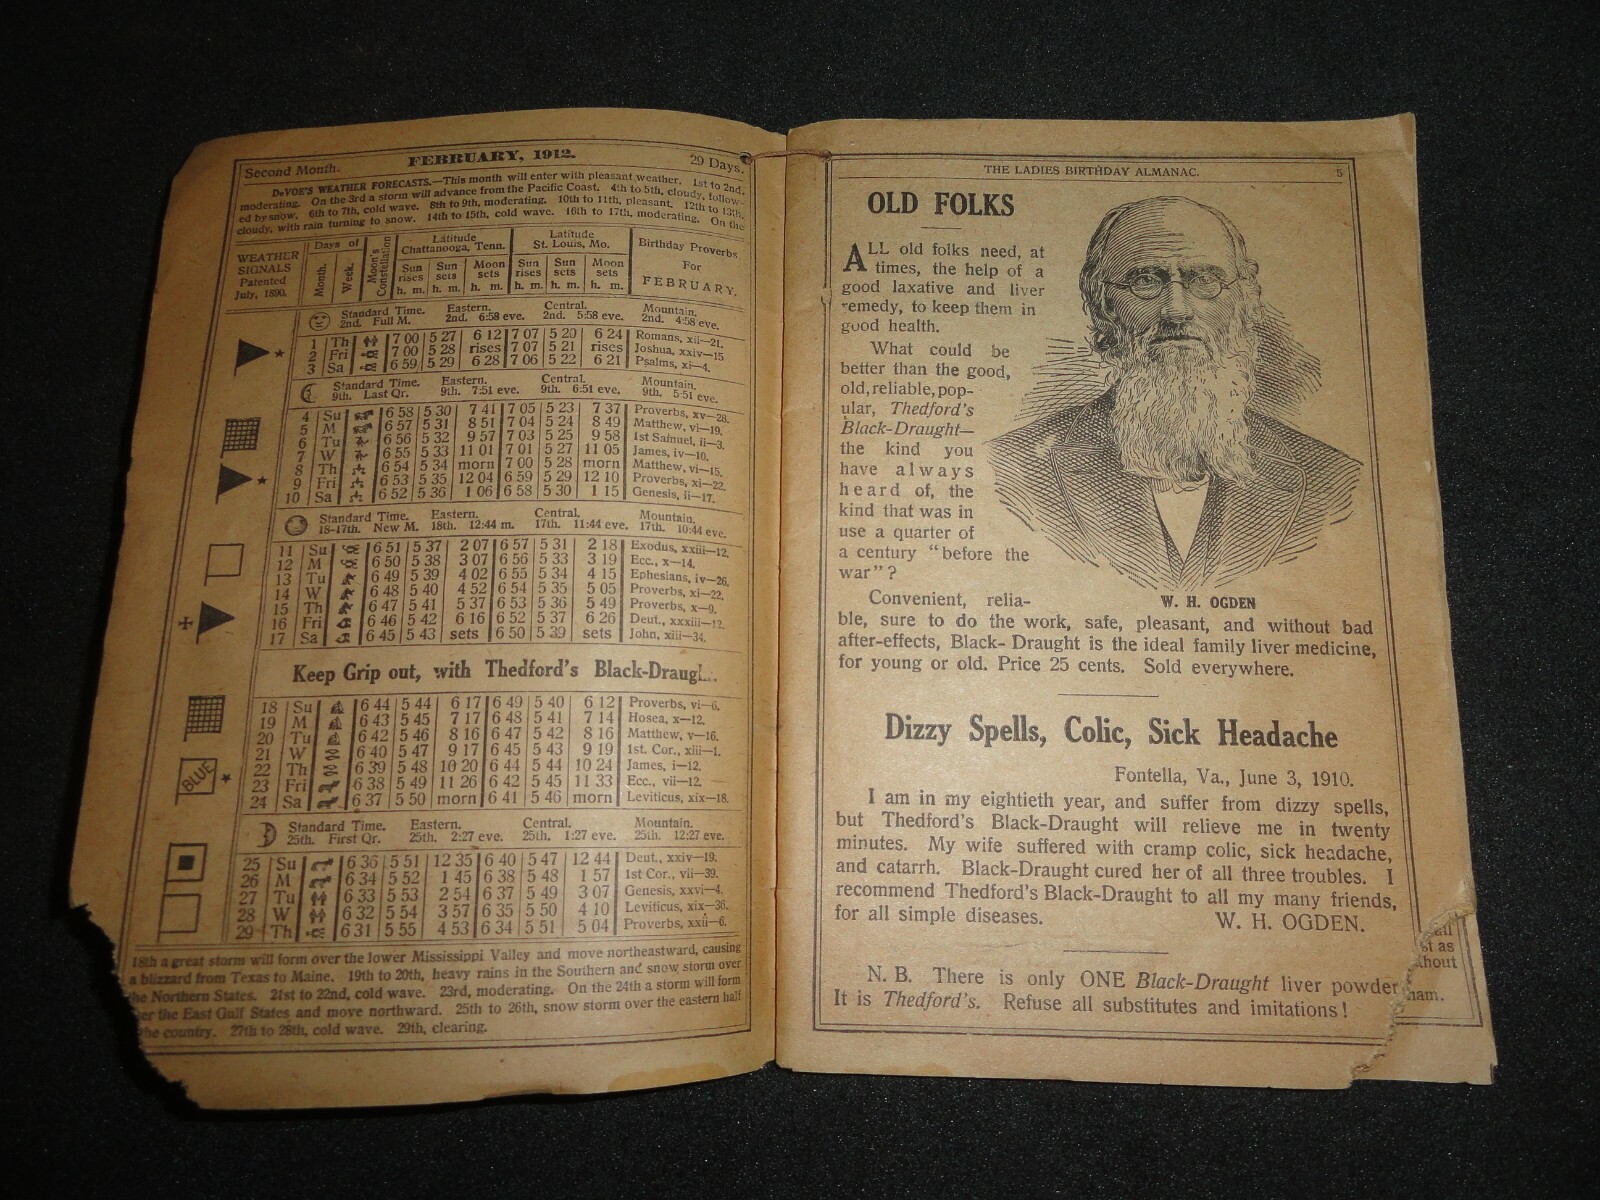 Second Month.
FEBRUARY, 1912.
29 Days.
DeVOE'S WEATHER FORECASTS.—This month will enter with pleasant weather. 1st to 2nd,
moderating. On the 3rd a storm will advance from the Pacific Coast. 4th to 5th, cloudy, follow-
ed by snow. 6th to 7th, cold wave. 8th to 9th, moderating. 10th to 11th, pleasant. 12th to 13th,
cloudy, with rain turning to snow. 14th to 15th, cold wave. 16th to 17th, moderating. On the
WEATHER
SIGNALS
Patented
July, 1890.
Days of
Month.
Week.
Moon's
Constellation
Latitude
Chattanooga, Tenn.
Latitude
St. Louis, Mo.
Birthday Proverbs
For
FEBRUARY.
Sun rises h. m. Sun sets h. m. Moon sets h. m. Sun rises h. m. Sun sets h. m. Moon sets h. m.
Standard Time. Eastern. Central. Mountain.
2nd. Full M. 2nd. 6:58 eve. 2nd. 5:58 eve. 2nd. 4:58 eve.
1 Th 7 00 5 27 6 12 7 07 5 20 6 24 Romans, xii—21.
2 Fri 7 00 5 28 rises 7 07 5 21 rises Joshua, xxiv—15
3 Sa 6 59 5 29 6 28 7 06 5 22 6 21 Psalms, xi—4.
Standard Time. Eastern. Central. Mountain.
9th. Last Qr. 9th. 7:51 eve. 9th. 6:51 eve. 9th. 5:51 eve.
4 Su 6 58 5 30 7 41 7 05 5 23 7 37 Proverbs, xv—28.
5 M 6 57 5 31 8 51 7 04 5 24 8 49 Matthew, vi—19.
6 Tu 6 56 5 32 9 57 7 03 5 25 9 58 1st Samuel, ii—3.
7 W 6 55 5 33 11 01 7 01 5 27 11 05 James, iv—10.
8 Th 6 54 5 34 morn 7 00 5 28 morn Matthew, vi—15.
9 Fri 6 53 5 35 12 04 6 59 5 29 12 10 Proverbs, xi—22.
10 Sa 6 52 5 36 1 06 6 58 5 30 1 15 Genesis, ii—17.
Standard Time. Eastern. Central. Mountain.
18-17th. New M. 18th. 12:44 m. 17th. 11:44 eve. 17th. 10:44 eve.
11 Su 6 51 5 37 2 07 6 57 5 31 2 18 Exodus, xxiii—12.
12 M 6 50 5 38 3 07 6 56 5 33 3 19 Ecc., x—14.
13 Tu 6 49 5 39 4 02 6 55 5 34 4 15 Ephesians, iv—26.
14 W 6 48 5 40 4 52 6 54 5 35 5 05 Proverbs, xi—22.
15 Th 6 47 5 41 5 37 6 53 5 36 5 49 Proverbs, x—9.
16 Fri 6 46 5 42 6 16 6 52 5 37 6 26 Deut., xxxiii—12.
17 Sa 6 45 5 43 sets 6 50 5 39 sets John, xiii—34.
Keep Grip out, with Thedford's Black-Draug
18 Su 6 44 5 44 6 17 6 49 5 40 6 12 Proverbs, vi—6.
19 M 6 43 5 45 7 17 6 48 5 41 7 14 Hosea, x—12.
20 Tu 6 42 5 46 8 16 6 47 5 42 8 16 Matthew, v—16.
21 W 6 40 5 47 9 17 6 45 5 43 9 19 1st. Cor., xiii—1.
22 Th 6 39 5 48 10 20 6 44 5 44 10 24 James, i—12.
23 Fri 6 38 5 49 11 26 6 42 5 45 11 33 Ecc., vii—12.
24 Sa 6 37 5 50 morn 6 41 5 46 morn Leviticus, xix—18.
BLUE
Standard Time. Eastern. Central. Mountain.
25th. First Qr. 25th. 2:27 eve. 25th. 1:27 eve. 25th. 12:27 eve.
25 Su 6 36 5 51 12 35 6 40 5 47 12 44 Deut., xxiv—19.
26 M 6 34 5 52 1 45 6 38 5 48 1 57 1st Cor., vii—39.
27 Tu 6 33 5 53 2 54 6 37 5 49 3 07 Genesis, xxvi—4.
28 W 6 32 5 54 3 57 6 35 5 50 4 10 Leviticus, xix—36.
29 Th 6 31 5 55 4 53 6 34 5 51 5 04 Proverbs, xxii—6.
18th a great storm will form over the lower Mississippi Valley and move northeastward, causing
a blizzard from Texas to Maine. 19th to 20th, heavy rains in the Southern and snow storm over
he Northern States. 21st to 22nd, cold wave. 23rd, moderating. On the 24th a storm will form
er the East Gulf States and move northward. 25th to 26th, snow storm over the eastern half
the country. 27th to 28th, cold wave. 29th, clearing.
THE LADIES BIRTHDAY ALMANAC. 5
OLD FOLKS
ALL old folks need, at
times, the help of a
good laxative and liver
remedy, to keep them in
good health.
What could be
better than the good,
old, reliable, pop-
ular, Thedford's
Black-Draught—
the kind you
have always
heard of, the
kind that was in
use a quarter of
a century "before the
war"?
W. H. OGDEN
Convenient, relia-
ble, sure to do the work, safe, pleasant, and without bad
after-effects, Black- Draught is the ideal family liver medicine,
for young or old. Price 25 cents. Sold everywhere.
Dizzy Spells, Colic, Sick Headache
Fontella, Va., June 3, 1910.
I am in my eightieth year, and suffer from dizzy spells,
but Thedford's Black-Draught will relieve me in twenty
minutes. My wife suffered with cramp colic, sick headache,
and catarrh. Black-Draught cured her of all three troubles. I
recommend Thedford's Black-Draught to all my many friends,
for all simple diseases. W. H. OGDEN.
N. B. There is only ONE Black-Draught liver powder
It is Thedford's. Refuse all substitutes and imitations!
st as
thout
ham.